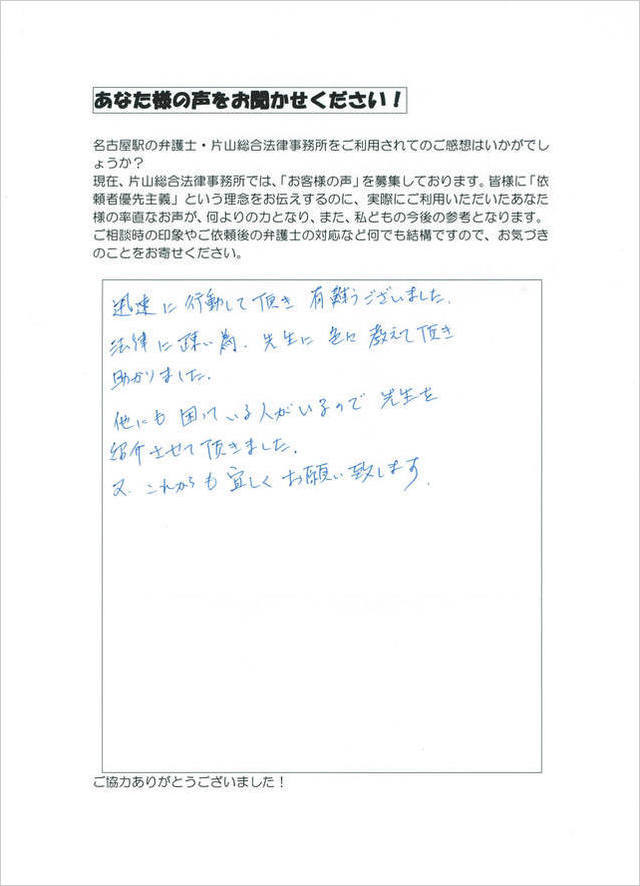 あなた様の声をお聞かせください！
名古屋駅の弁護士・片山総合法律事務所をご利用されてのご感想はいかがでし
ょうか？
現在、片山総合法律事務所では、「お客様の声」を募集しております。皆様に「依
頼者優先主義」という理念をお伝えするのに、実際にご利用いただいたあなた
様の率直なお声が、何よりの力となり、また、私どもの今後の参考となります。
ご相談時の印象やご依頼後の弁護士の対応など何でも結構ですので、お気づき
のことをお寄せください。
迅速に行動して頂き有難うございました.
法律に疎い為、先生に色々教えて頂き
助かりました.
他にも困っている人がいるので先生を
紹介させて頂きました.
又、これからも宜しくお願い致します.
ご協力ありがとうございました！